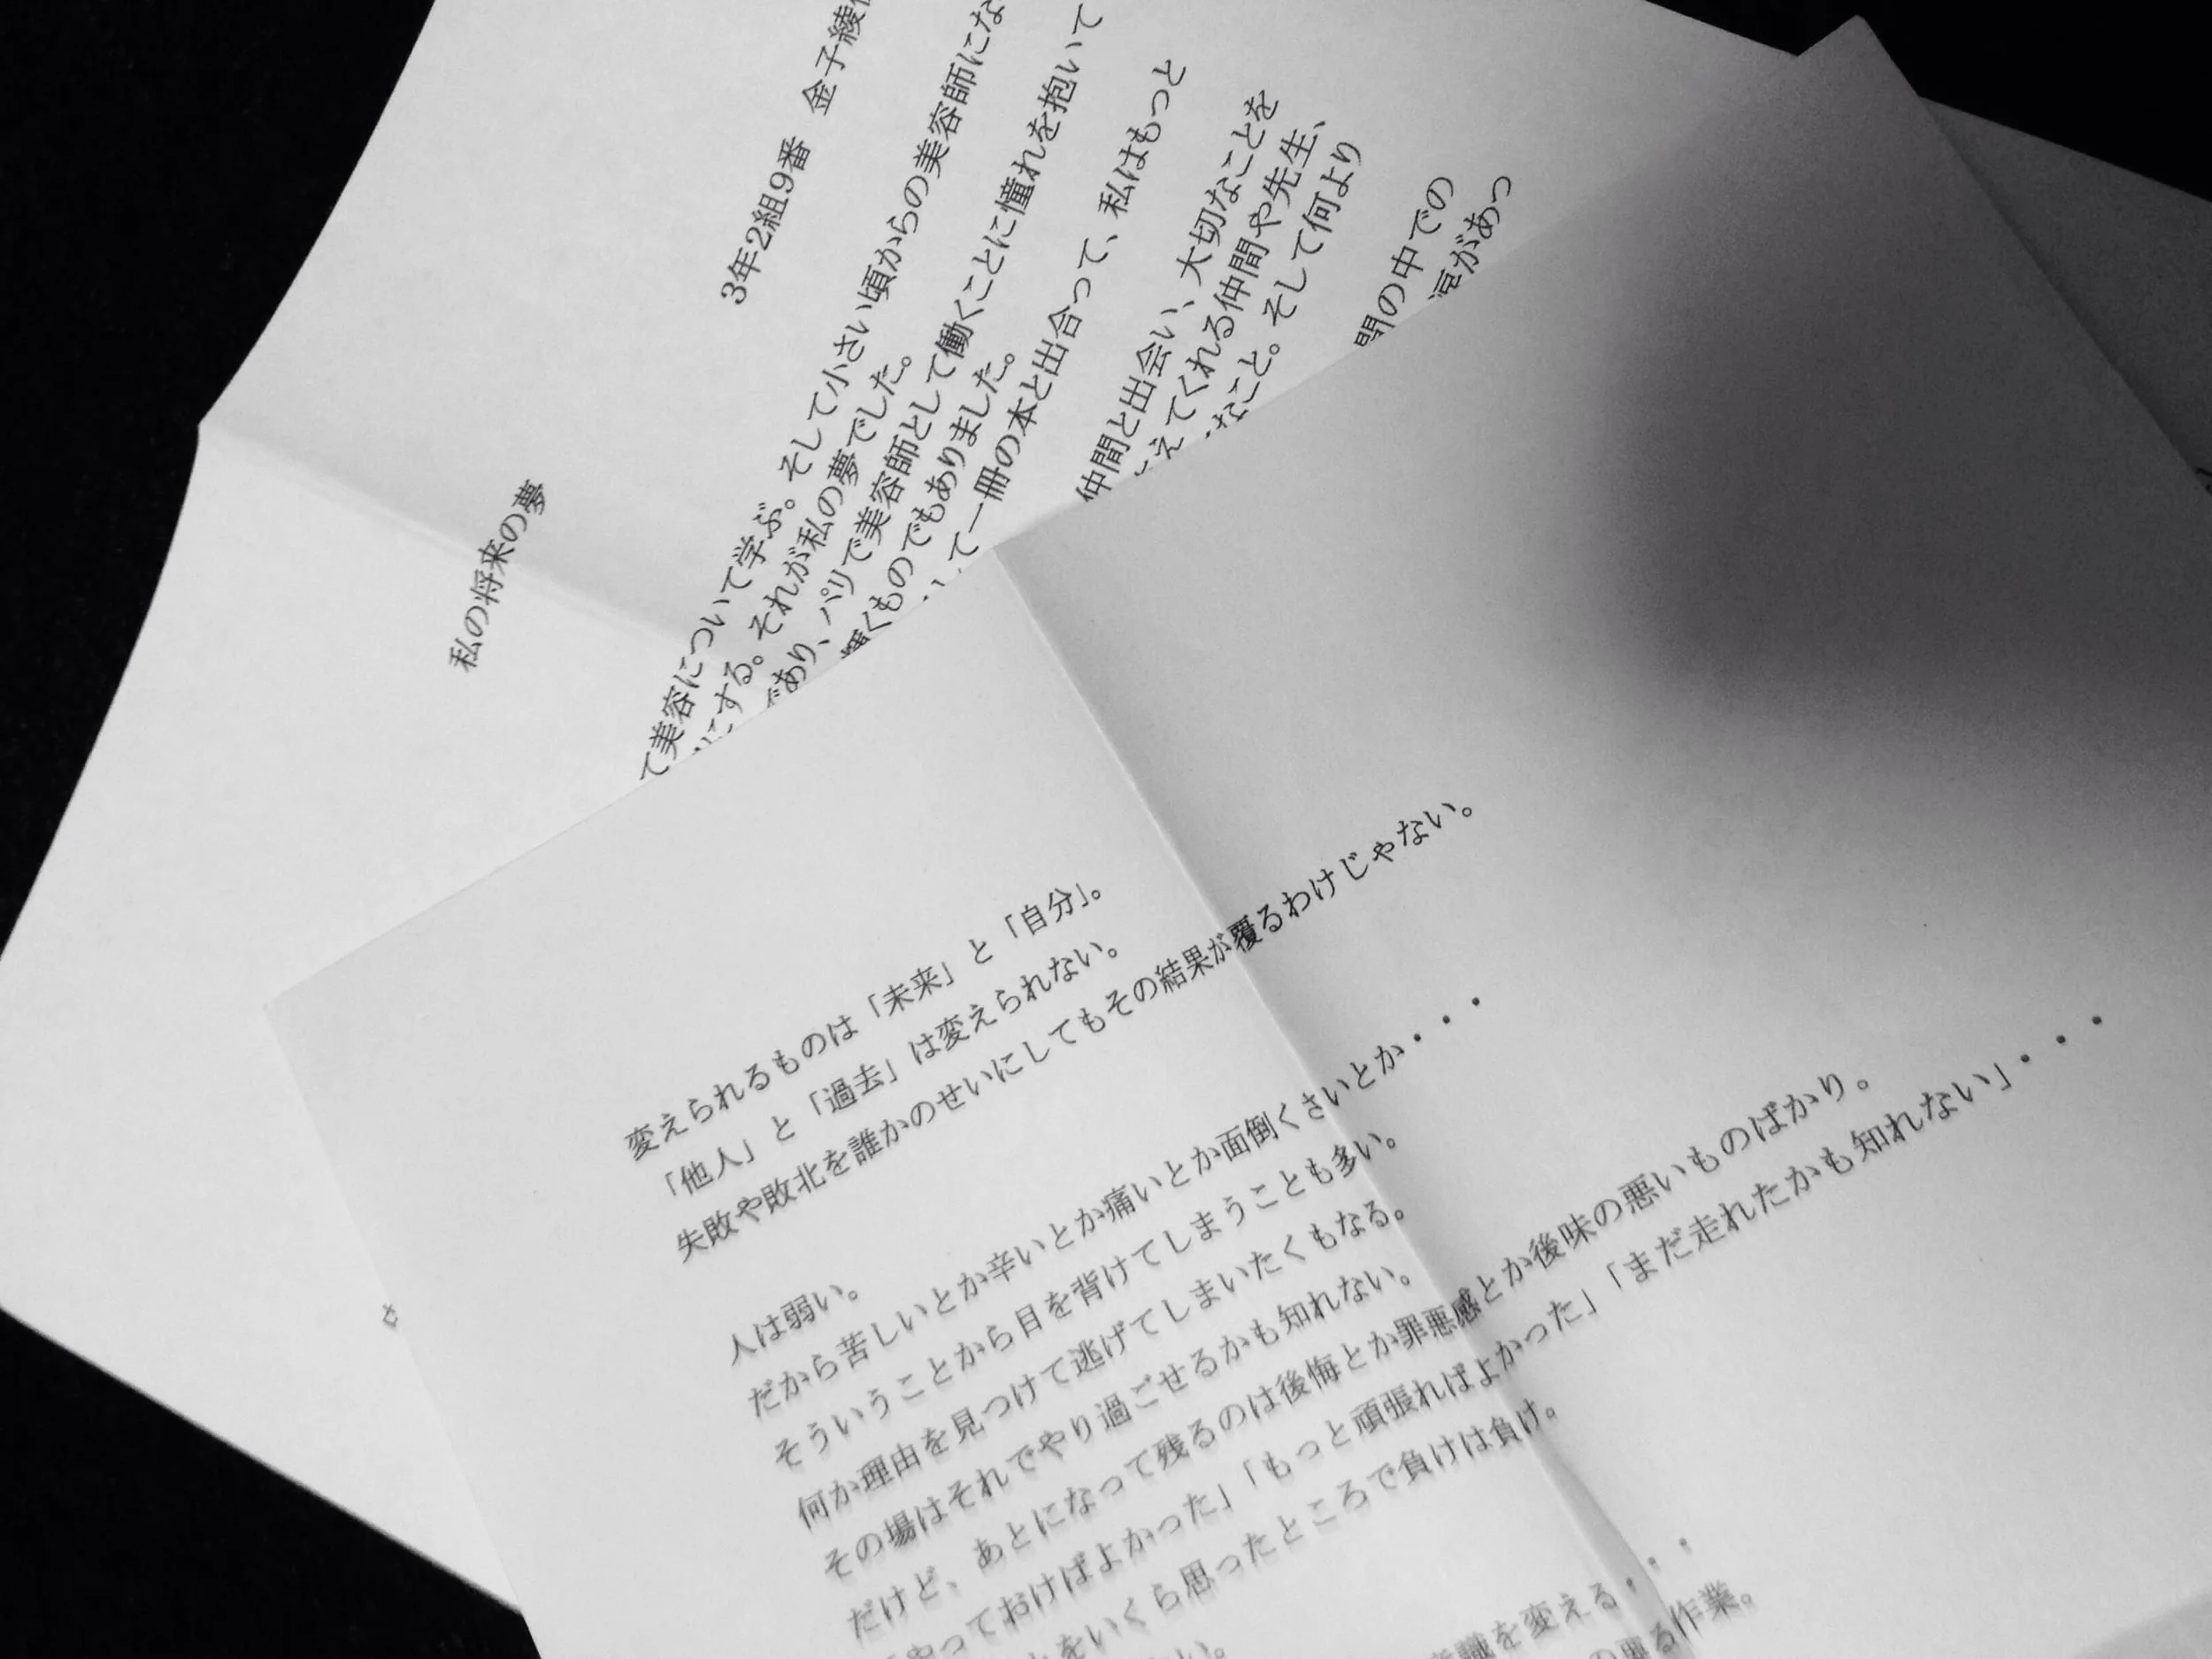 私の将来の夢
3年2組9番 金子綾
て美容について学ぶ。そして小さい頃からの美容師にな
にする。それが私の夢でした。
であり、パリで美容師として働くことに憧れを抱いて
くものでもありました。
て一冊の本と出合って、私はもっと
仲間と出会い、大切なことを
えてくれる仲間や先生、
なこと。そして何より
間の中での
があっ
変えられるものは「未来」と「自分」。
「他人」と「過去」は変えられない。
失敗や敗北を誰かのせいにしてもその結果が覆るわけじゃない。
人は弱い。
だから苦しいとか辛いとか痛いとか面倒くさいとか・・・
そういうことから目を背けてしまうことも多い。
何か理由を見つけて逃げてしまいたくもなる。
その場はそれでやり過ごせるかも知れない。
だけど、あとになって残るのは後悔とか罪悪感とか後味の悪いものばかり。
やっておけばよかった」「もっと頑張ればよかった」「まだ走れたかも知れない」・・・
をいくら思ったところで負けは負け。
い。
識を変える・・・
る作業。
さ